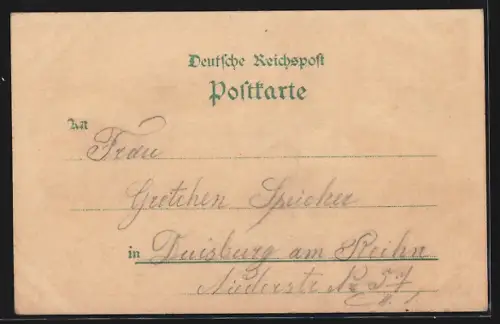 Deutsche Reichspost
Postkarte
An
Frau
Gretchen Speicher
in Duisburg am Reihn
Niederstr. No 57